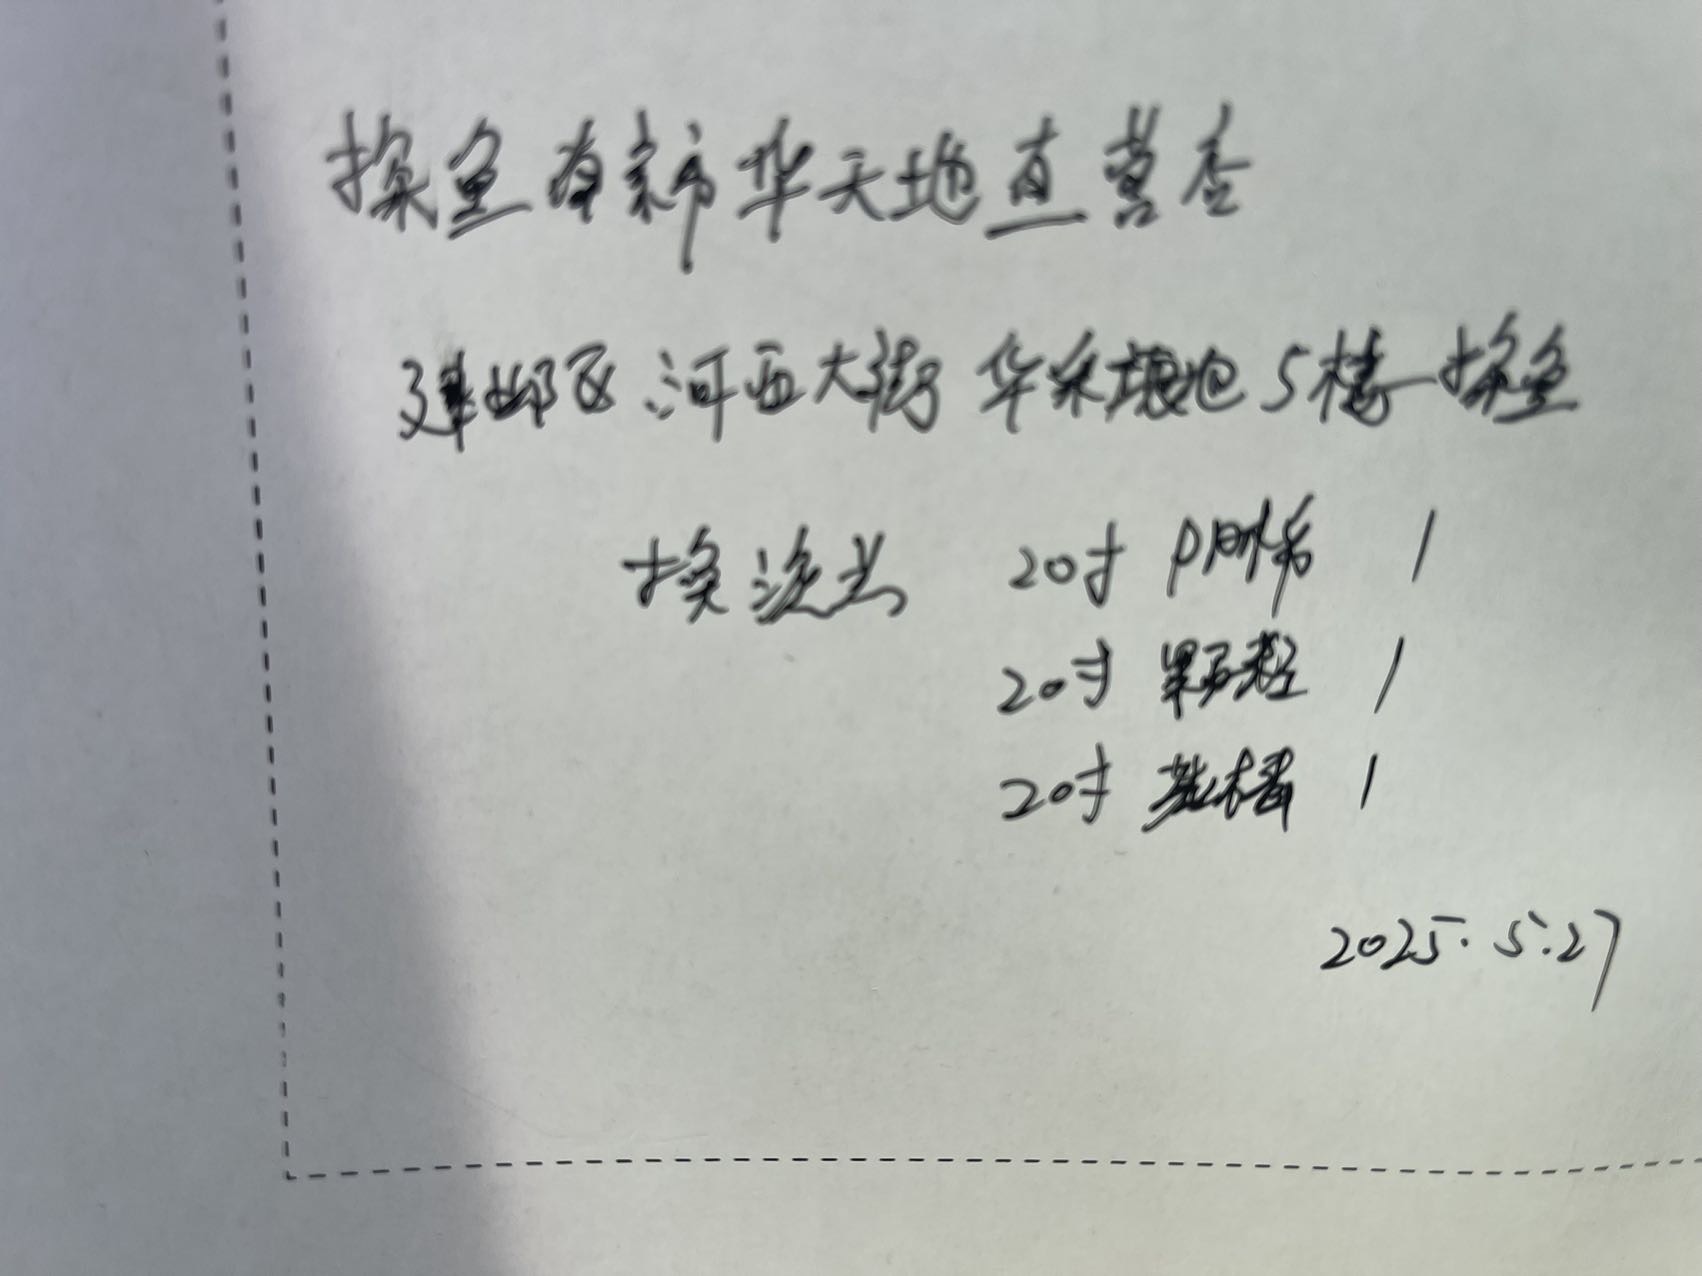 探鱼南京华采天地直营店
建邺区河西大街华采天地5楼探鱼
换滤芯 20寸 PP棉 1
20寸 颗粒 1
20寸 1
2025.5.27